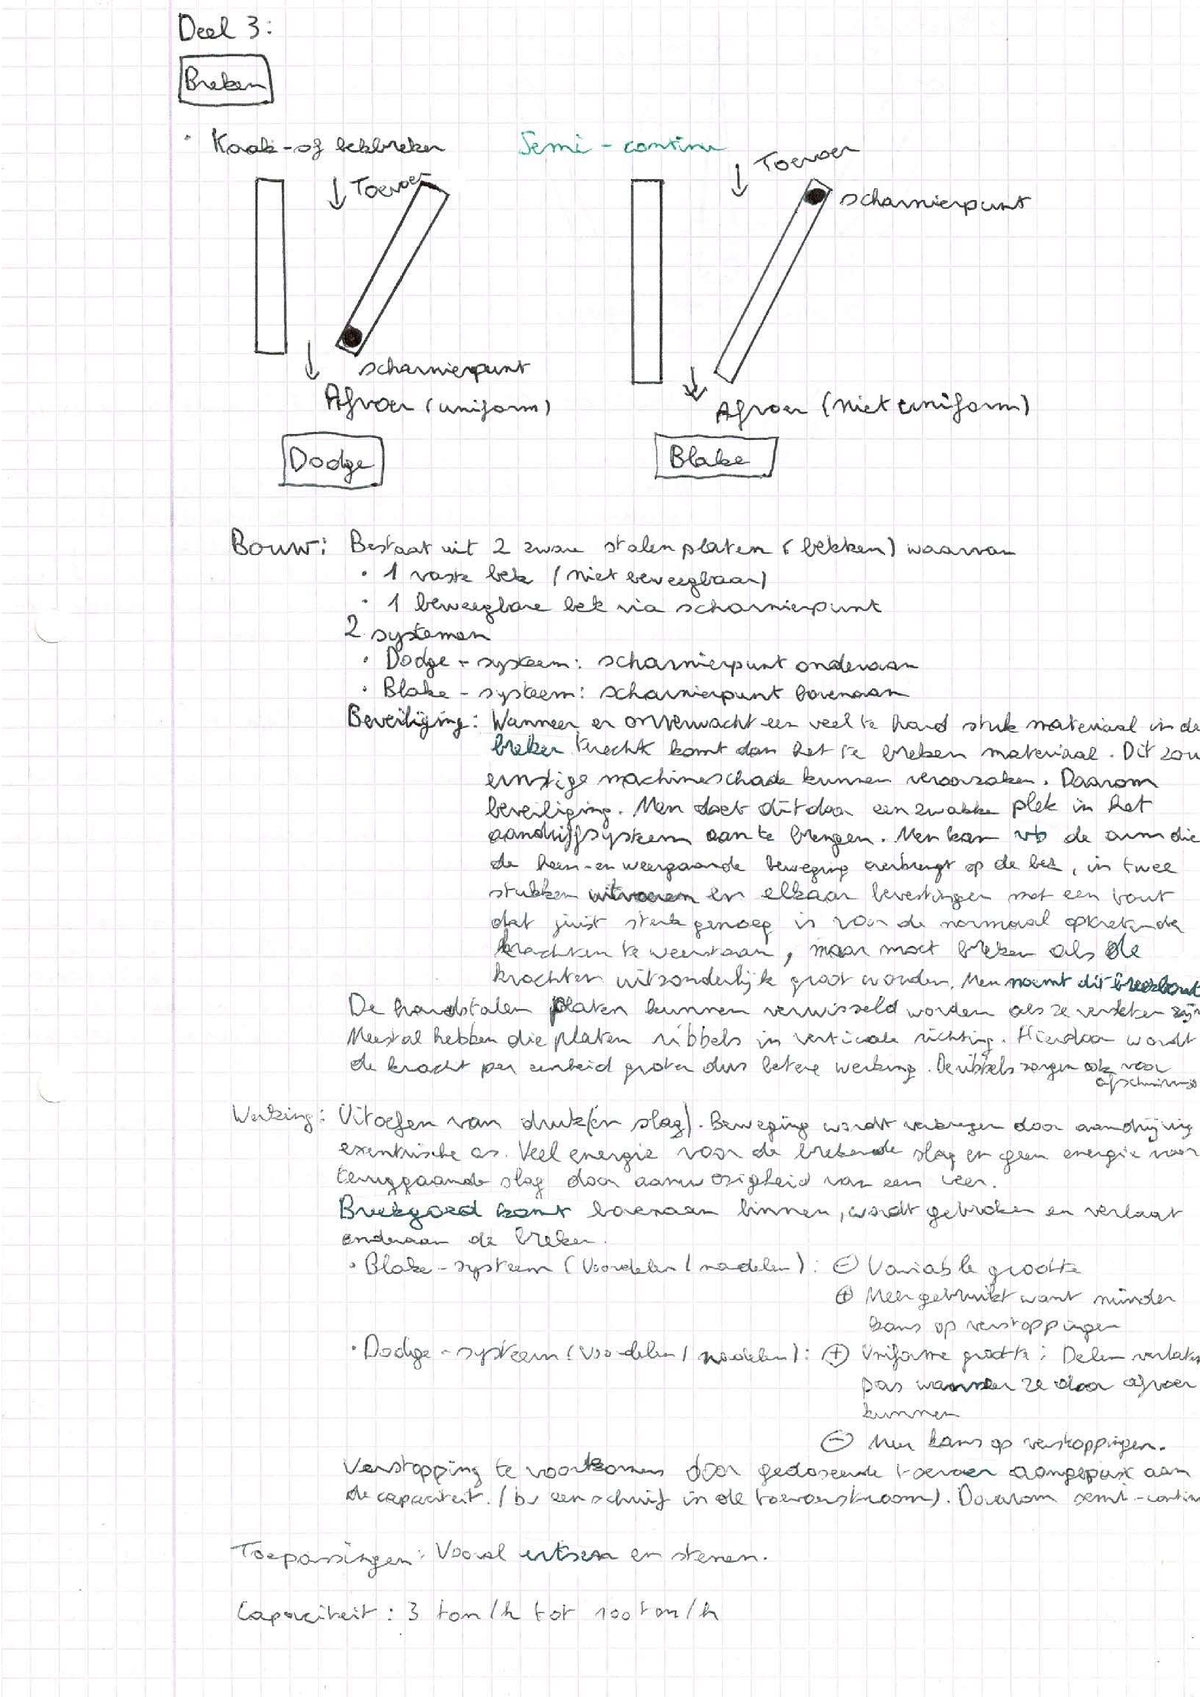 Deel 3:
Breken
• Kaak-of bekbreken Semi-continu
Toevoer
Toevoer
scharnierpunt
scharnierpunt
Afvoer (uniform)
Afvoer (niet uniform)
Dodge
Blake
Bouw: Bestaat uit 2 zware stalen platen (bekken) waarvan
• 1 vaste bek (niet beweegbaar)
• 1 beweegbare bek via scharnierpunt
2 systemen
• Dodge-systeem: scharnierpunt onderaan
• Blake-systeem: scharnierpunt bovenaan
Beveiliging: Wanneer er onverwacht een veel te hard stuk materiaal in de
breker terecht komt dan het te breken materiaal. Dit zou
ernstige machineschade kunnen veroorzaken. Daarom
beveiliging. Men doet dit door een zwakke plek in het
aandrijfsysteem aan te brengen. Men kan vb de arm die
de heen-en weergaande beweging overbrengt op de bek, in twee
stukken uitvoeren en elkaar bevestingen met een bout
dat juist sterk genoeg is voor de normaal optredende
krachten te weerstaan, maar moet breken als de
krachten uitzonderlijk groot worden. Men noemt dit breekbout
De hardstalen platen kunnen verwisseld worden als ze versleten zijn
Meestal hebben die platen ribbels in verticale richting. Hierdoor wordt
de kracht per eenheid groter dus betere werking. De ribbels zorgen ook voor
afschuiving
Werking: Uitoefen van druk(en slag). Beweging wordt verkregen door aandrijving
exentrische as. Veel energie voor de brekende slag en geen energie voor
teruggaande slag door aanwezigheid van een veer.
Breekgoed komt bovenaan binnen, wordt gebroken en verlaat
onderaan de breker.
• Blake-systeem (Voordelen/nadelen): ⊖ Variable grootte
⊕ Meer gebruikt want minder
kans op verstoppingen
• Dodge-systeem (Voordelen/nadelen): ⊕ Uniforme grootte: Delen verlaten
pas wanneer ze door afvoer
kunnen
⊖ Meer kans op verstoppingen.
Verstopping te voorkomen door gedoseerde toevoer aangepast aan
de capaciteit. (bv een schuif in de toevoerstroom). Daarom semi-continu
Toepassingen: Vooral ertsen en stenen.
Capaciteit: 3 ton/h tot 100 ton/h